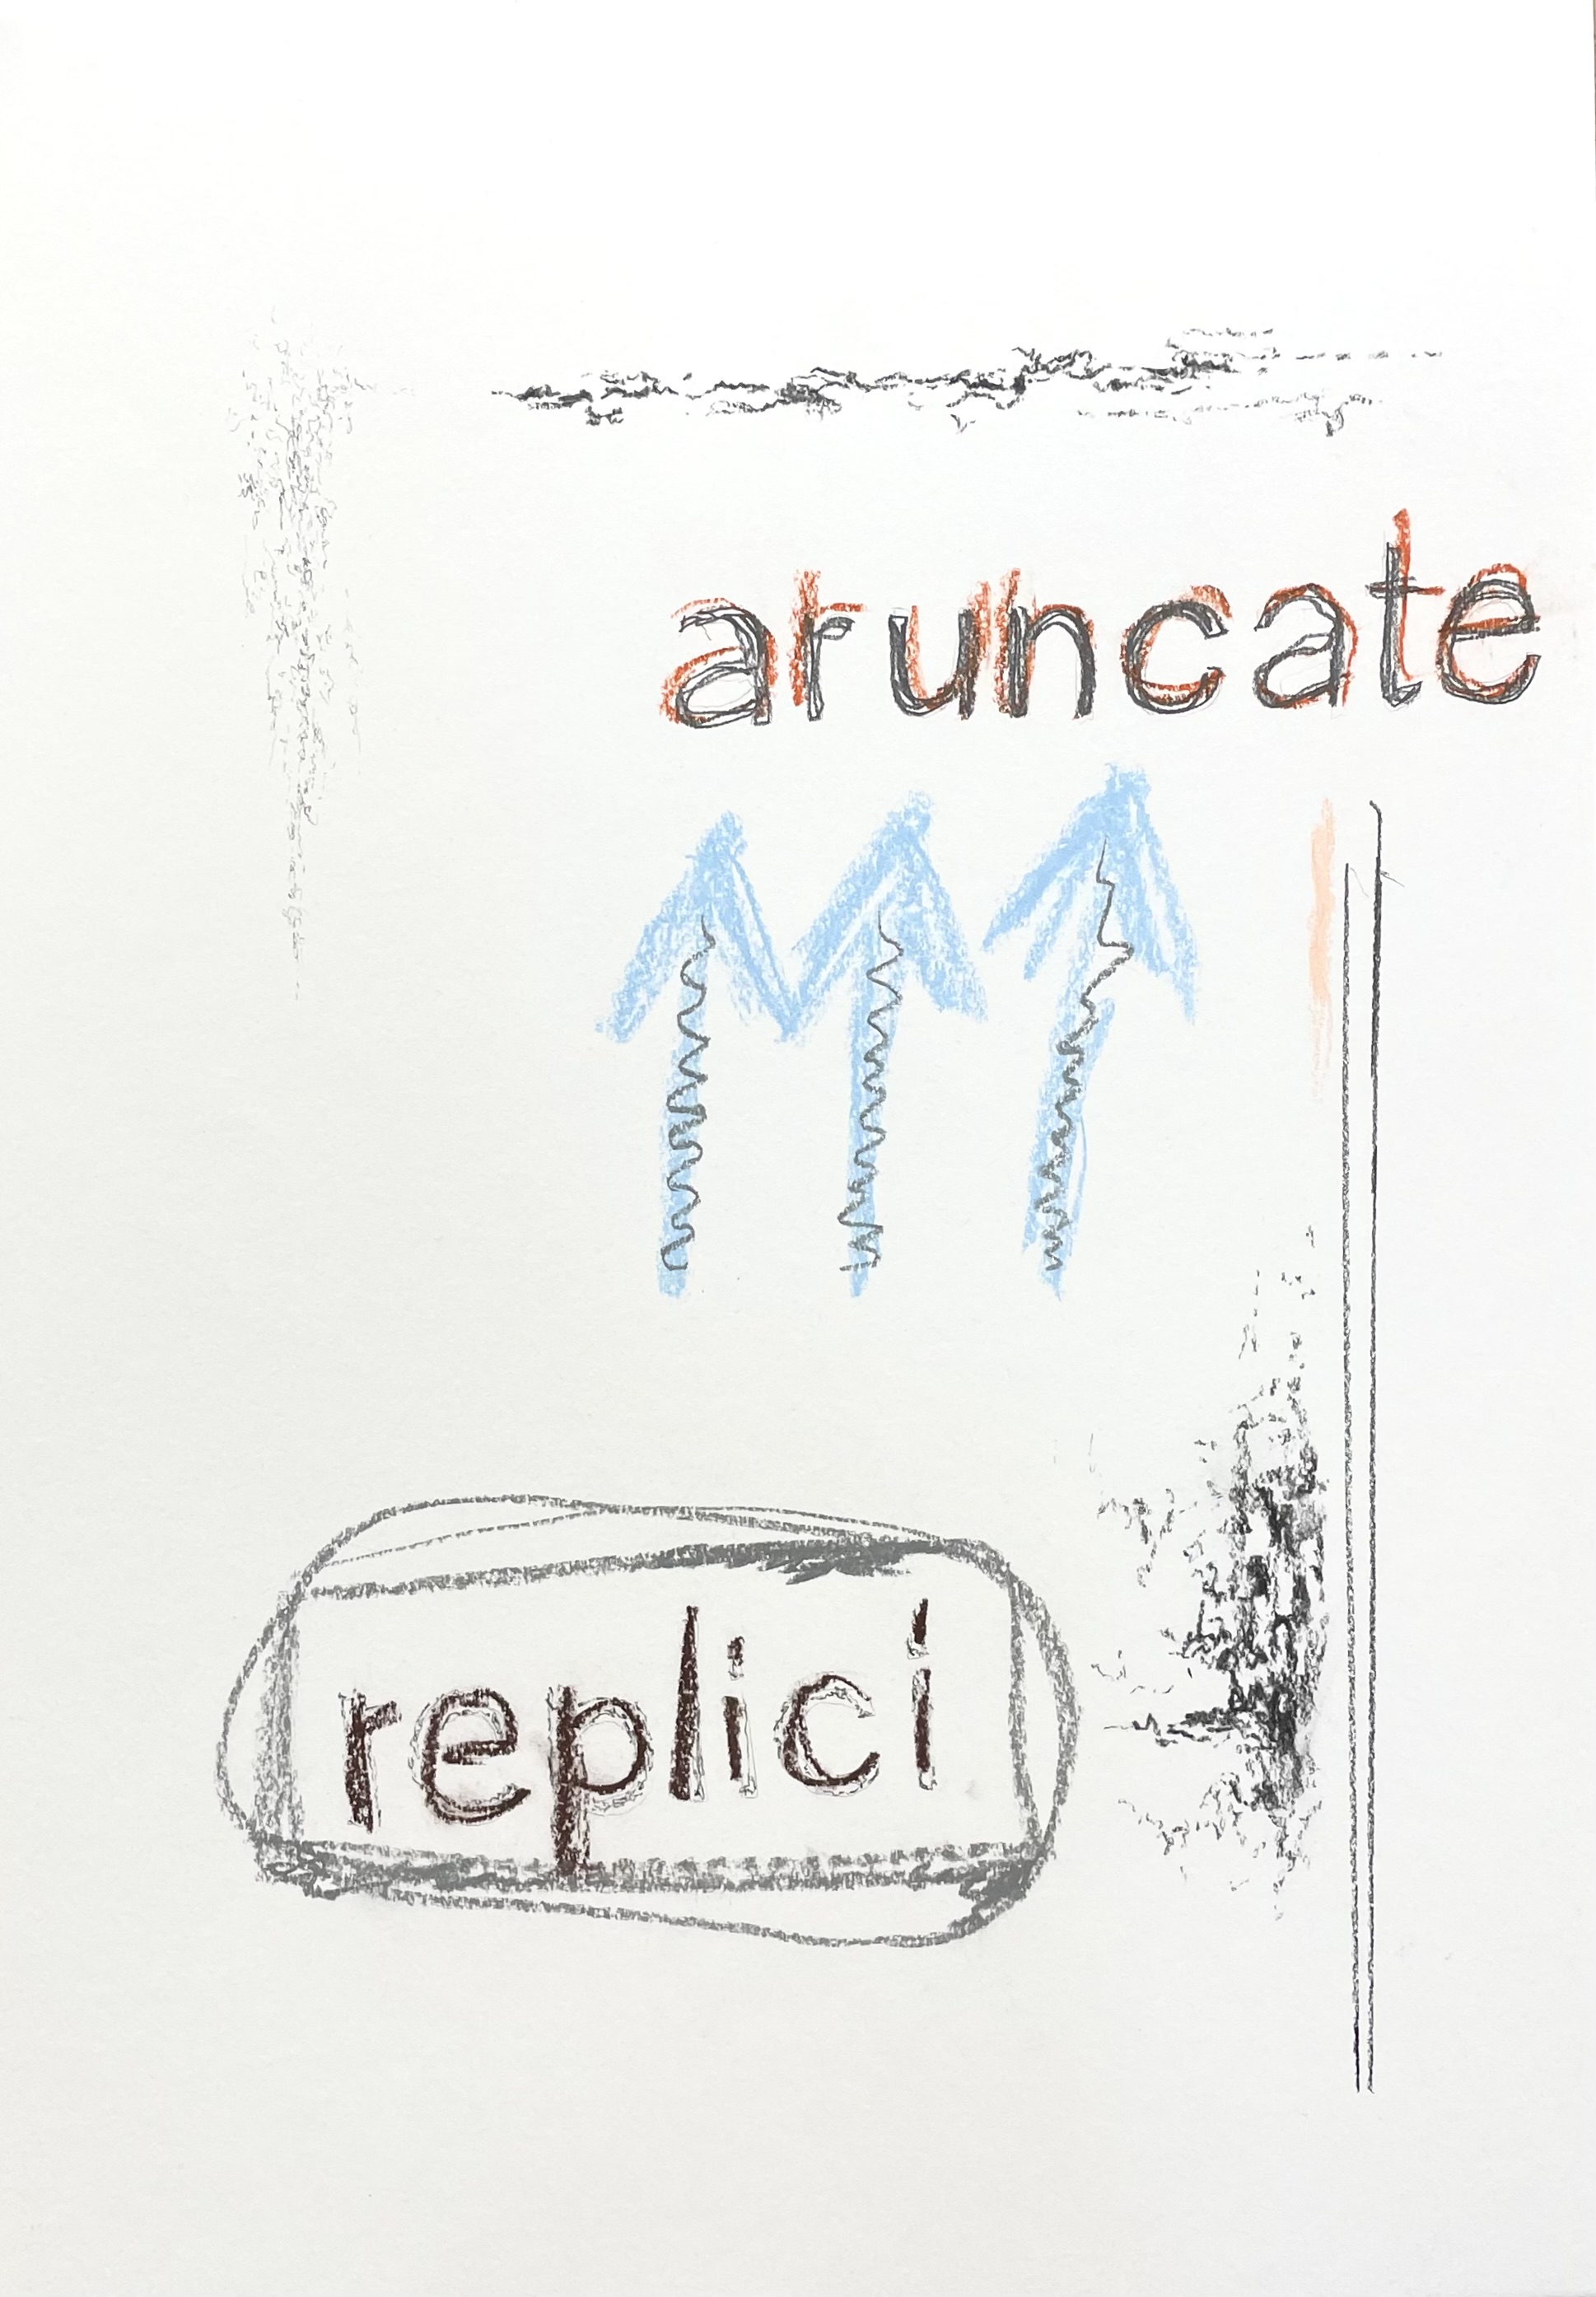 aruncate
replici